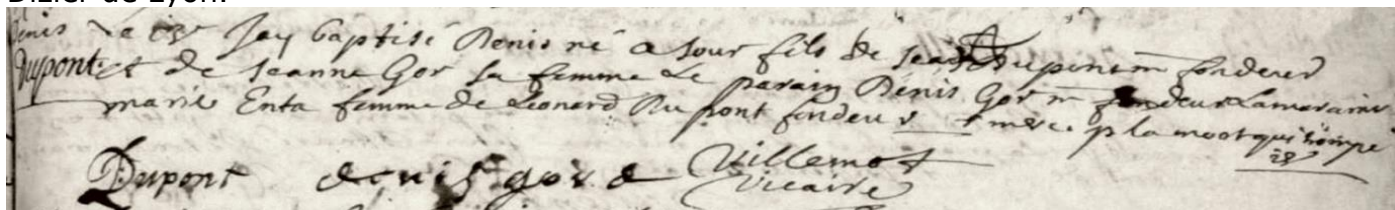 Dizier de Lyon.
Denis Le 13e Jay baptisé Denis né a Jour fils de Jean Dupont m fondeur
Dupont et de Jeanne Gor sa femme Le parain Denis Gor m fondeur La maraine
marie Enta femme de Léonard Du pont fondeur
Dupont denis gord Villemot
Vicaire